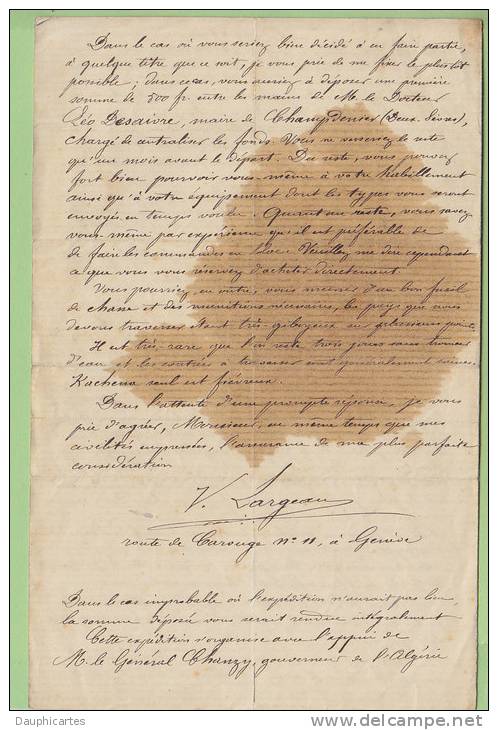 Dans le cas où vous seriez bien décidé à en faire partie,
à quelque titre que ce soit, je vous prie de me fixer le plus tôt
possible ; dans ce cas, vous auriez à déposer une première
somme de 500 fr. entre les mains de M. le Docteur
Léo Desaivre, maire de Champdenier (Deux-Sèvres),
chargé de centraliser les fonds. Vous ne verseriez le reste
qu'un mois avant le départ. Du reste, vous pouvez
fort bien pourvoir vous-même à votre habillement
ainsi qu'à votre équipement dont les types vous seront
envoyés en temps voulu. Quant au reste, vous savez
vous-même par expérience qu'il est préférable de
de faire les commandes en bloc. Veuillez me dire cependant
ce que vous vous réservez d'acheter directement.
Vous pourriez, en outre, vous munir d'un bon fusil
de chasse et des munitions nécessaires, les pays que nous
devons traverser étant très-giboyeux sur plusieurs points.
Il est très-rare que l'on reste trois jours sans trouver
d'eau et les contrées à traverser sont généralement saines.
Kachena seul est fiévreux.
Dans l'attente d'une prompte réponse, je vous
prie d'agréer, Monsieur, en même temps que mes
civilités empressées, l'assurance de ma plus parfaite
considération
V. Largeau
route de Carouge N° 11, à Genève
Dans le cas improbable où l'expédition n'aurait pas lieu,
la somme déposée vous serait rendue intégralement
Cette expédition s'organise avec l'appui de
M. le Général Chanzy, gouverneur de l'Algérie
Dauphicartes
©delcampe.net